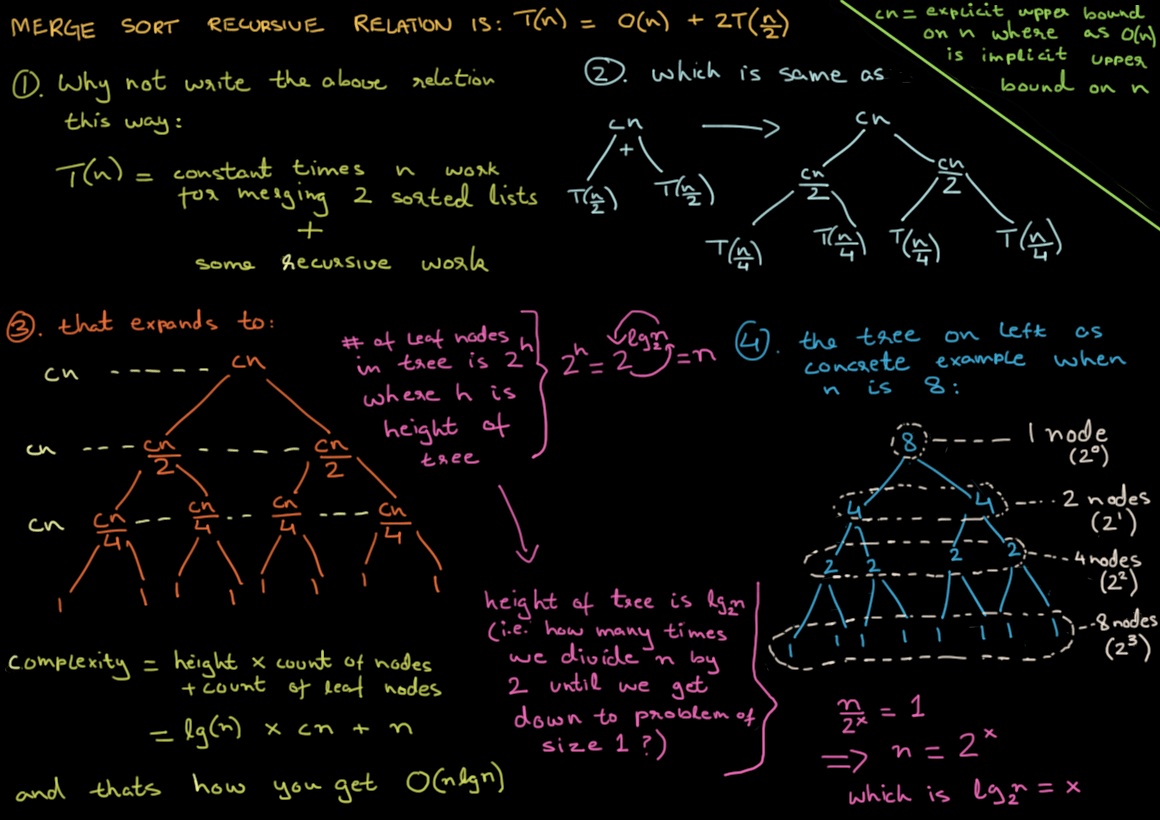 MERGE SORT RECURSIVE RELATION IS: T(n) = O(n) + 2T(n/2)
cn = explicit upper bound
on n where as O(n)
is implicit upper
bound on n
①. Why not write the above relation
this way:
T(n) = constant times n work
for merging 2 sorted lists
+
some recursive work
②. which is same as
cn → cn
+
cn/2 cn/2
T(n/2) T(n/2)
T(n/4) T(n/4) T(n/4) T(n/4)
③. that expands to:
cn ----- cn
cn --- cn/2 ----- cn/2
cn cn/4 -- cn/4 -- cn/4 --- cn/4
1 1 1 1 1 1 1 1
# of leaf nodes
in tree is 2^h
where h is
height of
tree
2^h = 2^lg₂n = n
height of tree is lg₂n
(i.e. how many times
we divide n by
2 until we get
down to problem of
size 1?)
complexity = height x count of nodes
+ count of leaf nodes
= lg(n) x cn + n
and thats how you get O(nlgn)
④. the tree on left as
concrete example when
n is 8:
8 ---- 1 node
(2⁰)
4 4 --- 2 nodes
(2¹)
2 2 2 2 --- 4 nodes
(2²)
1 1 1 1 1 1 1 1 -- 8 nodes
(2³)
n/2^x = 1
⇒ n = 2^x
which is lg₂n = x